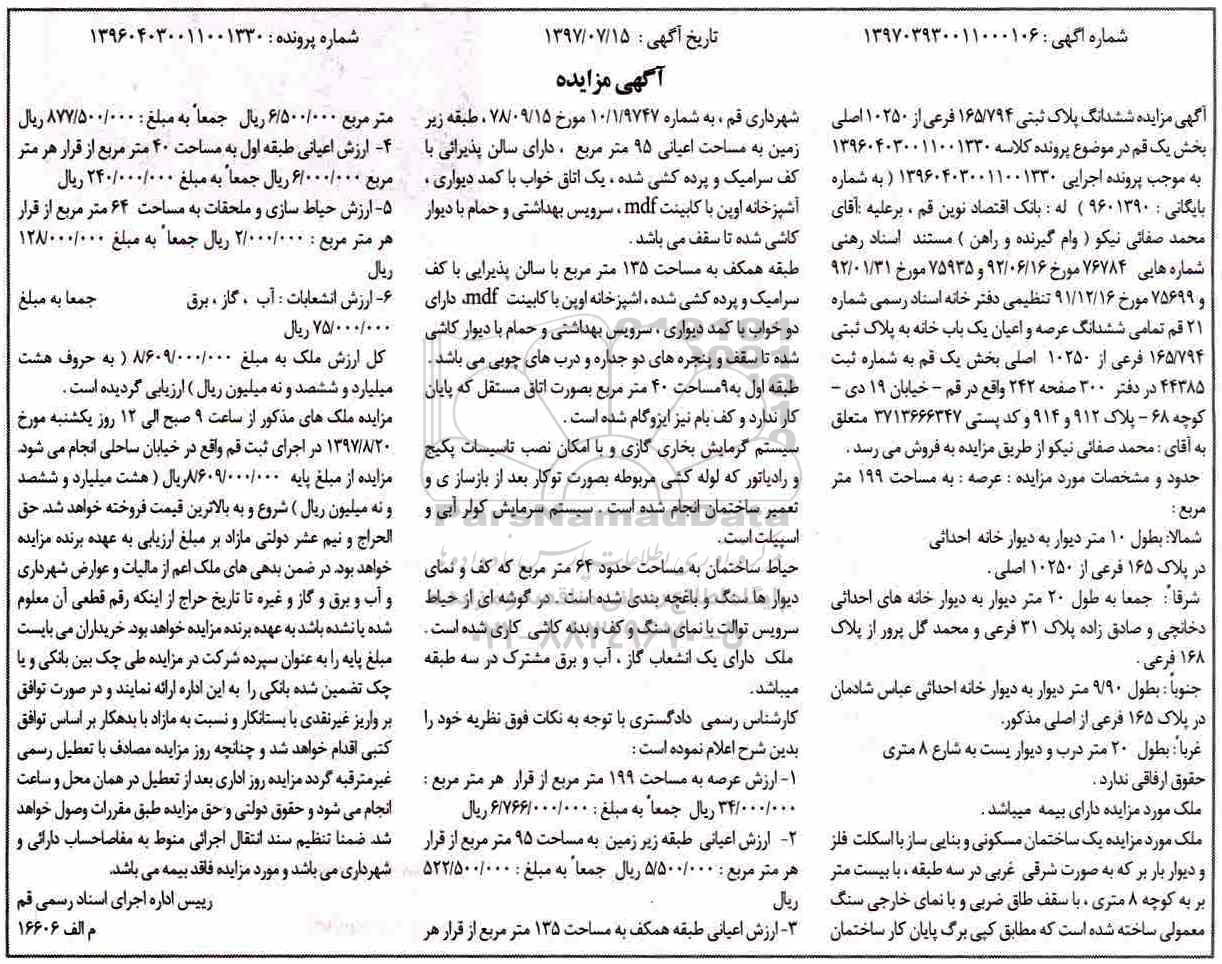 شماره آگهی : ۱۳۹۷۰۳۹۳۰۰۱۱۰۰۰۱۰۶
تاریخ آگهی : ۱۳۹۷/۰۷/۱۵
شماره پرونده : ۱۳۹۶۰۴۰۳۰۰۱۱۰۰۱۳۳۰
آگهی مزایده
آگهی مزایده ششدانگ پلاک ثبتی ۱۶۵/۷۹۴ فرعی از ۱۰۲۵۰ اصلی
بخش یک قم در موضوع پرونده کلاسه ۱۳۹۶۰۴۰۳۰۰۱۱۰۰۱۳۳۰
به موجب پرونده اجرایی ۱۳۹۶۰۴۰۳۰۰۱۱۰۰۱۳۳۰ ( به شماره
بایگانی : ۹۶۰۱۳۹۰ ) له : بانک اقتصاد نوین قم ، برعلیه :آقای
محمد صفائی نیکو ( وام گیرنده و راهن ) مستند اسناد رهنی
شماره هایی ۷۶۷۸۴ مورخ ۹۲/۰۶/۱۶ و ۷۵۹۳۵ مورخ ۹۲/۰۱/۳۱
و ۷۵۶۹۹ مورخ ۹۱/۱۲/۱۶ تنظیمی دفتر خانه اسناد رسمی شماره
۲۱ قم تمامی ششدانگ عرصه و اعیان یک باب خانه به پلاک ثبتی
۱۶۵/۷۹۴ فرعی از ۱۰۲۵۰ اصلی بخش یک قم به شماره ثبت
۴۴۳۸۵ در دفتر ۳۰۰ صفحه ۲۴۲ واقع در قم – خیابان ۱۹ دی –
کوچه ۶۸ – پلاک ۹۱۲ و ۹۱۴ و کد پستی ۳۷۱۳۶۶۶۳۴۷ متعلق
به آقای : محمد صفائی نیکو از طریق مزایده به فروش می رسد .
حدود و مشخصات مورد مزایده : عرصه : به مساحت ۱۹۹ متر
مربع :
شمالا: بطول ۱۰ متر دیوار به دیوار خانه احداثی
در پلاک ۱۶۵ فرعی از ۱۰۲۵۰ اصلی .
شرقاً : جمعا به طول ۲۰ متر دیوار به دیوار خانه های احداثی
دخانچی و صادق زاده پلاک ۳۱ فرعی و محمد گل پرور از پلاک
۱۶۸ فرعی .
جنوباً : بطول ۹/۹۰ متر دیوار به دیوار خانه احداثی عباس شادمان
در پلاک ۱۶۵ فرعی از اصلی مذکور.
غرباً: بطول ۲۰ متر درب و دیوار یست به شارع ۸ متری
حقوق ارفاقی ندارد .
ملک مورد مزایده دارای بیمه میباشد .
ملک مورد مزایده یک ساختمان مسکونی و بنایی ساز با اسکلت فلز
و دیوار بار بر که به صورت شرقی غربی در سه طبقه ، با بیست متر
بر به کوچه ۸ متری ، با سقف طاق ضربی و با نمای خارجی سنگ
معمولی ساخته شده است که مطابق کپی برگ پایان کار ساختمان
شهرداری قم ، به شماره ۱۰/۱/۹۷۴۷ مورخ ۷۸/۰۹/۱۵ ، طبقه زیر
زمین به مساحت اعیانی ۹۵ متر مربع ، دارای سالن پذیرائی با
کف سرامیک و پرده کشی شده ، یک اتاق خواب با کمد دیواری ،
آشپزخانه اوپن با کابینت mdf ، سرویس بهداشتی و حمام با دیوار
کاشی شده تا سقف می باشد .
طبقه همکف به مساحت ۱۳۵ متر مربع با سالن پذیرایی با کف
سرامیک و پرده کشی شده ، اشپزخانه اوپن با کابینت mdf، دارای
دو خواب با کمد دیواری ، سرویس بهداشتی و حمام با دیوار کاشی
شده تا سقف و پنجره های دو جداره و درب های چوبی می باشد .
طبقه اول به۹مساحت ۴۰ متر مربع بصورت اتاق مستقل که پایان
کار ندارد و کف بام نیز ایزوگام شده است .
سیستم گرمایش بخاری گازی و با امکان نصب تاسیسات پکیج
و رادیاتور که لوله کشی مربوطه بصورت توکار بعد از بازساز ی و
تعمیر ساختمان انجام شده است . سیستم سرمایش کولر آبی و
اسپیلت است .
حیاط ساختمان به مساحت حدود ۶۴ متر مربع که کف و نمای
دیوار ها سنگ و باغچه بندی شده است . در گوشه ای از حیاط
سرویس توالت با نمای سنگ و کف و بدنه کاشی کاری شده است .
ملک دارای یک انشعاب گاز ، آب و برق مشترک در سه طبقه
میباشد .
کارشناس رسمی دادگستری با توجه به نکات فوق نظریه خود را
بدین شرح اعلام نموده است :
۱- ارزش عرصه به مساحت ۱۹۹ متر مربع از قرار هر متر مربع :
۳۴/۰۰۰/۰۰۰ ریال جمعاً به مبلغ : ۶/۷۶۶/۰۰۰/۰۰۰ ریال
۲- ارزش اعیانی طبقه زیر زمین به مساحت ۹۵ متر مربع از قرار
هر متر مربع : ۵/۵۰۰/۰۰۰ ریال جمعاً به مبلغ : ۵۲۲/۵۰۰/۰۰۰
ریال
۳- ارزش اعیانی طبقه همکف به مساحت ۱۳۵ متر مربع از قرار هر
متر مربع ۶/۵۰۰/۰۰۰ ریال جمعاً به مبلغ : ۸۷۷/۵۰۰/۰۰۰ ریال
۴- ارزش اعیانی طبقه اول به مساحت ۴۰ متر مربع از قرار هر متر
مربع ۶/۰۰۰/۰۰۰ ریال جمعاً به مبلغ ۲۴۰/۰۰۰/۰۰۰ ریال
۵- ارزش حیاط سازی و ملحقات به مساحت ۶۴ متر مربع از قرار
هر متر مربع : ۲/۰۰۰/۰۰۰ ریال جمعاً به مبلغ ۱۲۸/۰۰۰/۰۰۰
ریال
۶- ارزش انشعابات : آب ، گاز ، برق جمعا به مبلغ
۷۵/۰۰۰/۰۰۰ ریال
کل ارزش ملک به مبلغ ۸/۶۰۹/۰۰۰/۰۰۰ ( به حروف هشت
میلیارد و ششصد و نه میلیون ریال ) ارزیابی گردیده است .
مزایده ملک های مذکور از ساعت ۹ صبح الی ۱۲ روز یکشنبه مورخ
۱۳۹۷/۸/۲۰ در اجرای ثبت قم واقع در خیابان ساحلی انجام می شود.
مزایده از مبلغ پایه ۸/۶۰۹/۰۰۰/۰۰۰ریال ( هشت میلیارد و ششصد
و نه میلیون ریال ) شروع و به بالاترین قیمت فروخته خواهد شد. حق
الحراج و نیم عشر دولتی مازاد بر مبلغ ارزیابی به عهده برنده مزایده
خواهد بود. در ضمن بدهی های ملک اعم از مالیات و عوارض شهرداری
و آب و برق و گاز و غیره تا تاریخ حراج از اینکه رقم قطعی آن معلوم
شده یا نشده باشد به عهده برنده مزایده خواهد بود. خریداران می بایست
مبلغ پایه را به عنوان سپرده شرکت در مزایده طی چک بین بانکی و یا
چک تضمین شده بانکی را به این اداره ارائه نمایند و در صورت توافق
بر واریز غیرنقدی با بستانکار و نسبت به مازاد با بدهکار بر اساس توافق
کتبی اقدام خواهد شد و چنانچه روز مزایده مصادف با تعطیل رسمی
غیرمترقبه گردد مزایده روز اداری بعد از تعطیل در همان محل و ساعت
انجام می شود و حقوق دولتی و حق مزایده طبق مقررات وصول خواهد
شد. ضمنا تنظیم سند انتقال اجرائی منوط به مفاصاحساب دارائی و
شهرداری می باشد و مورد مزایده فاقد بیمه می باشد.
رییس اداره اجرای اسناد رسمی قم
م الف ۱۶۶۰۶
ParsNamadData
۰۲۱-۸۸۳۴۹۶۷۰-۵